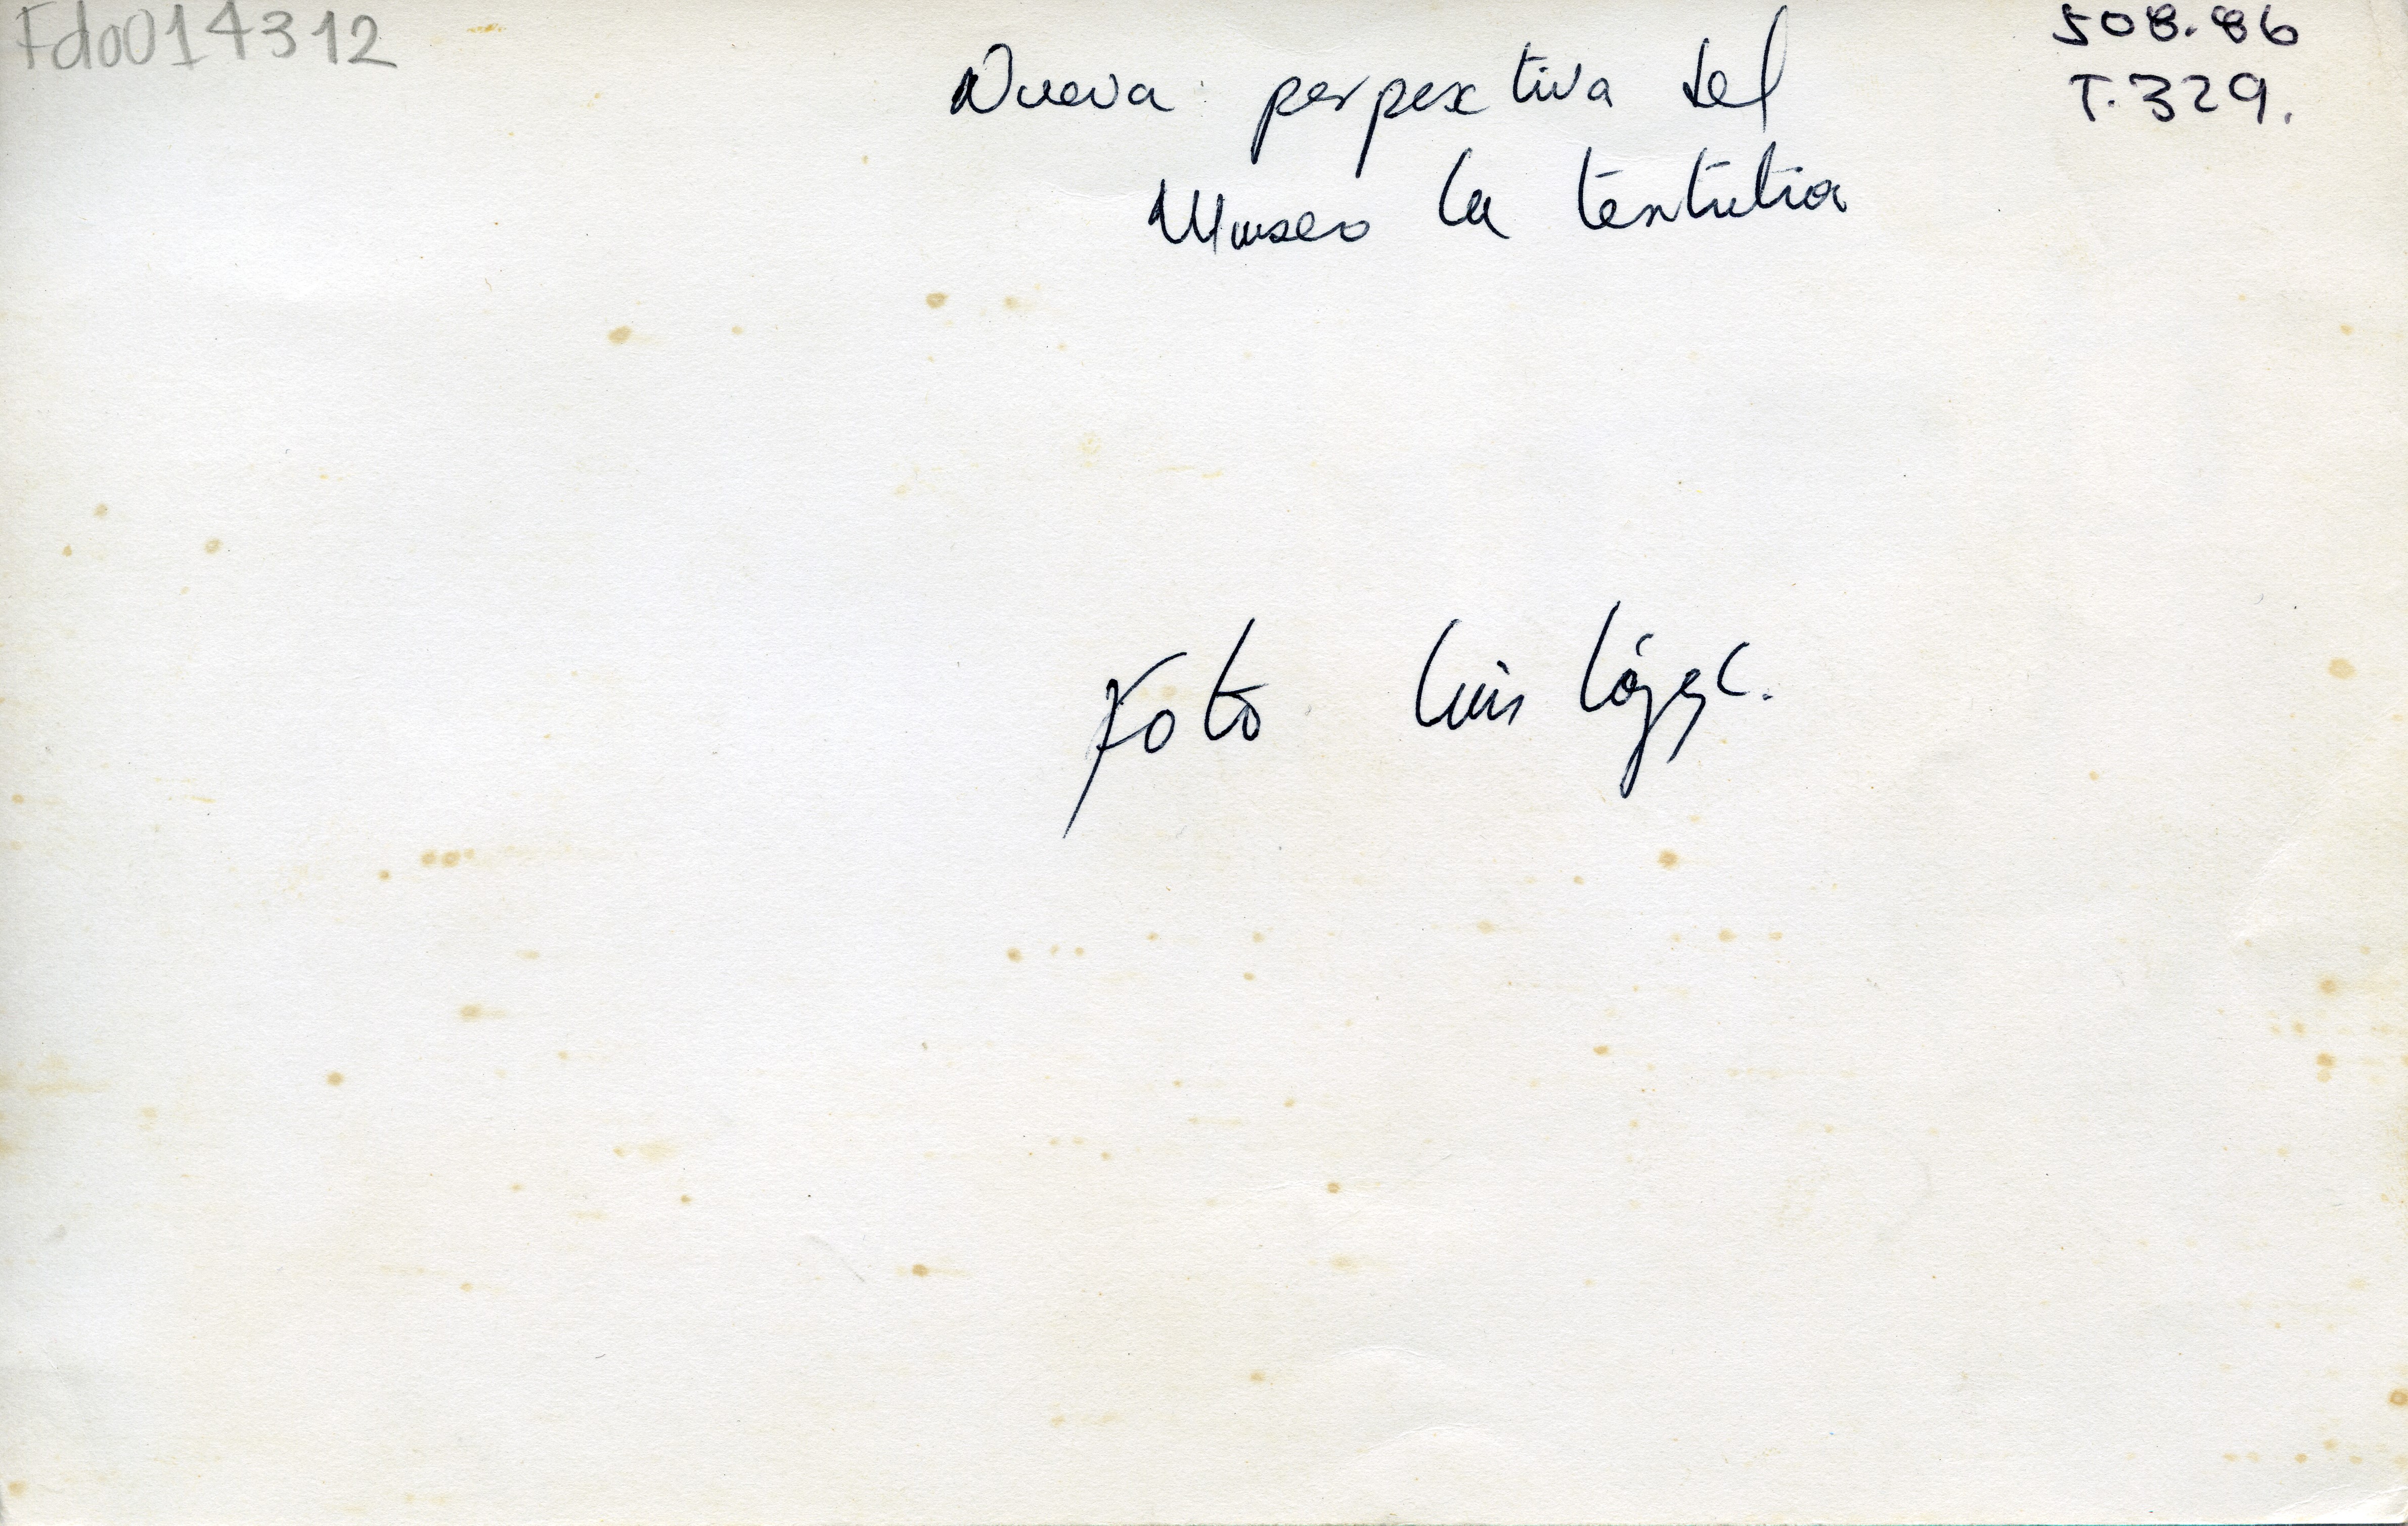 Fdo014312
508.86
T.329.
Nueva perpextiva del
Museo la tertulia
Foto Luis López.